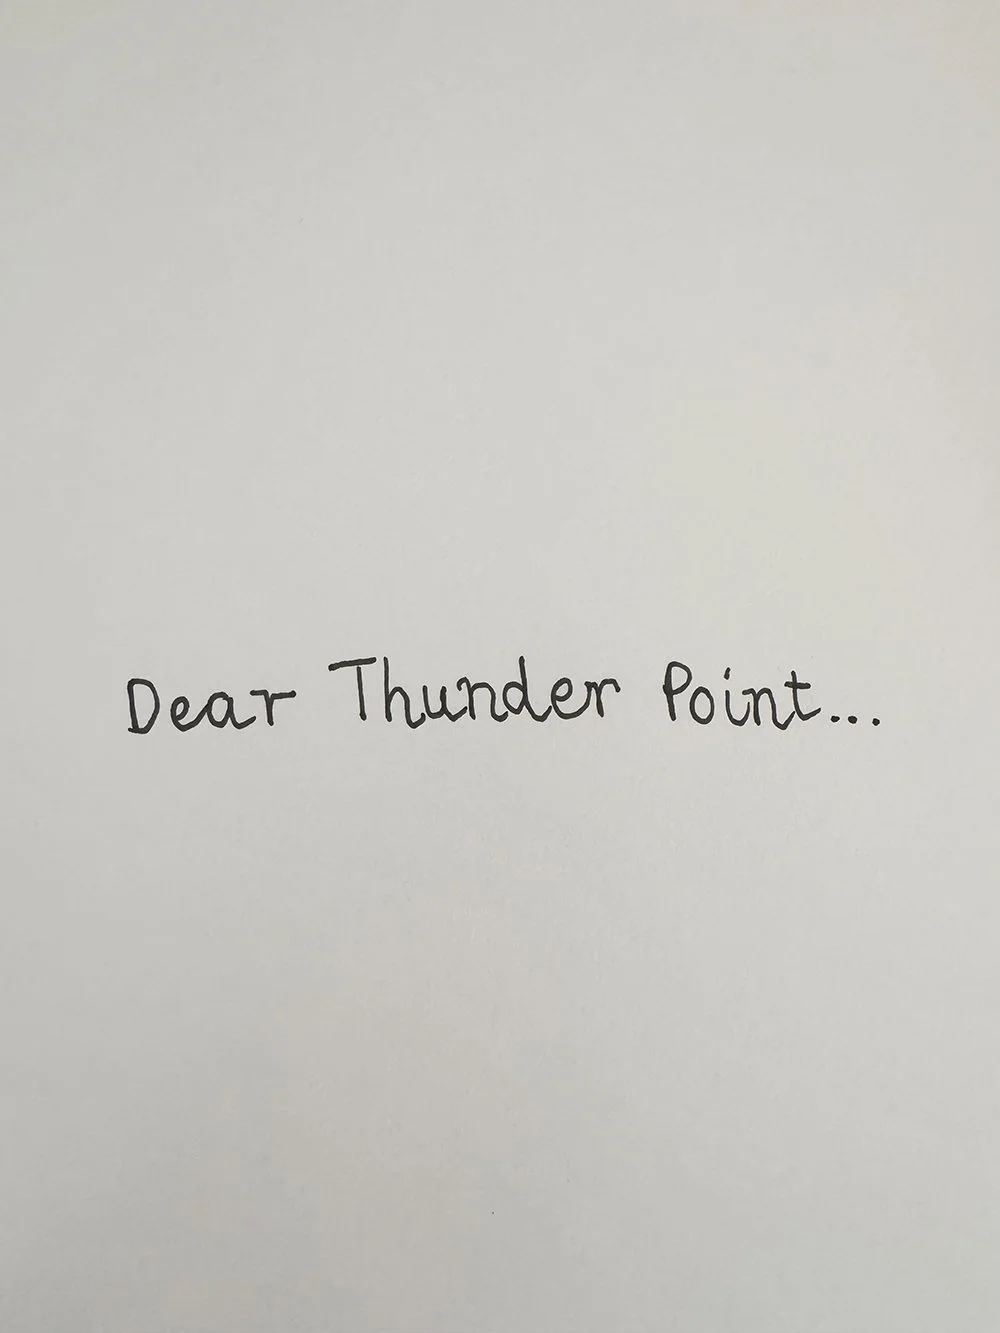 Dear Thunder Point...